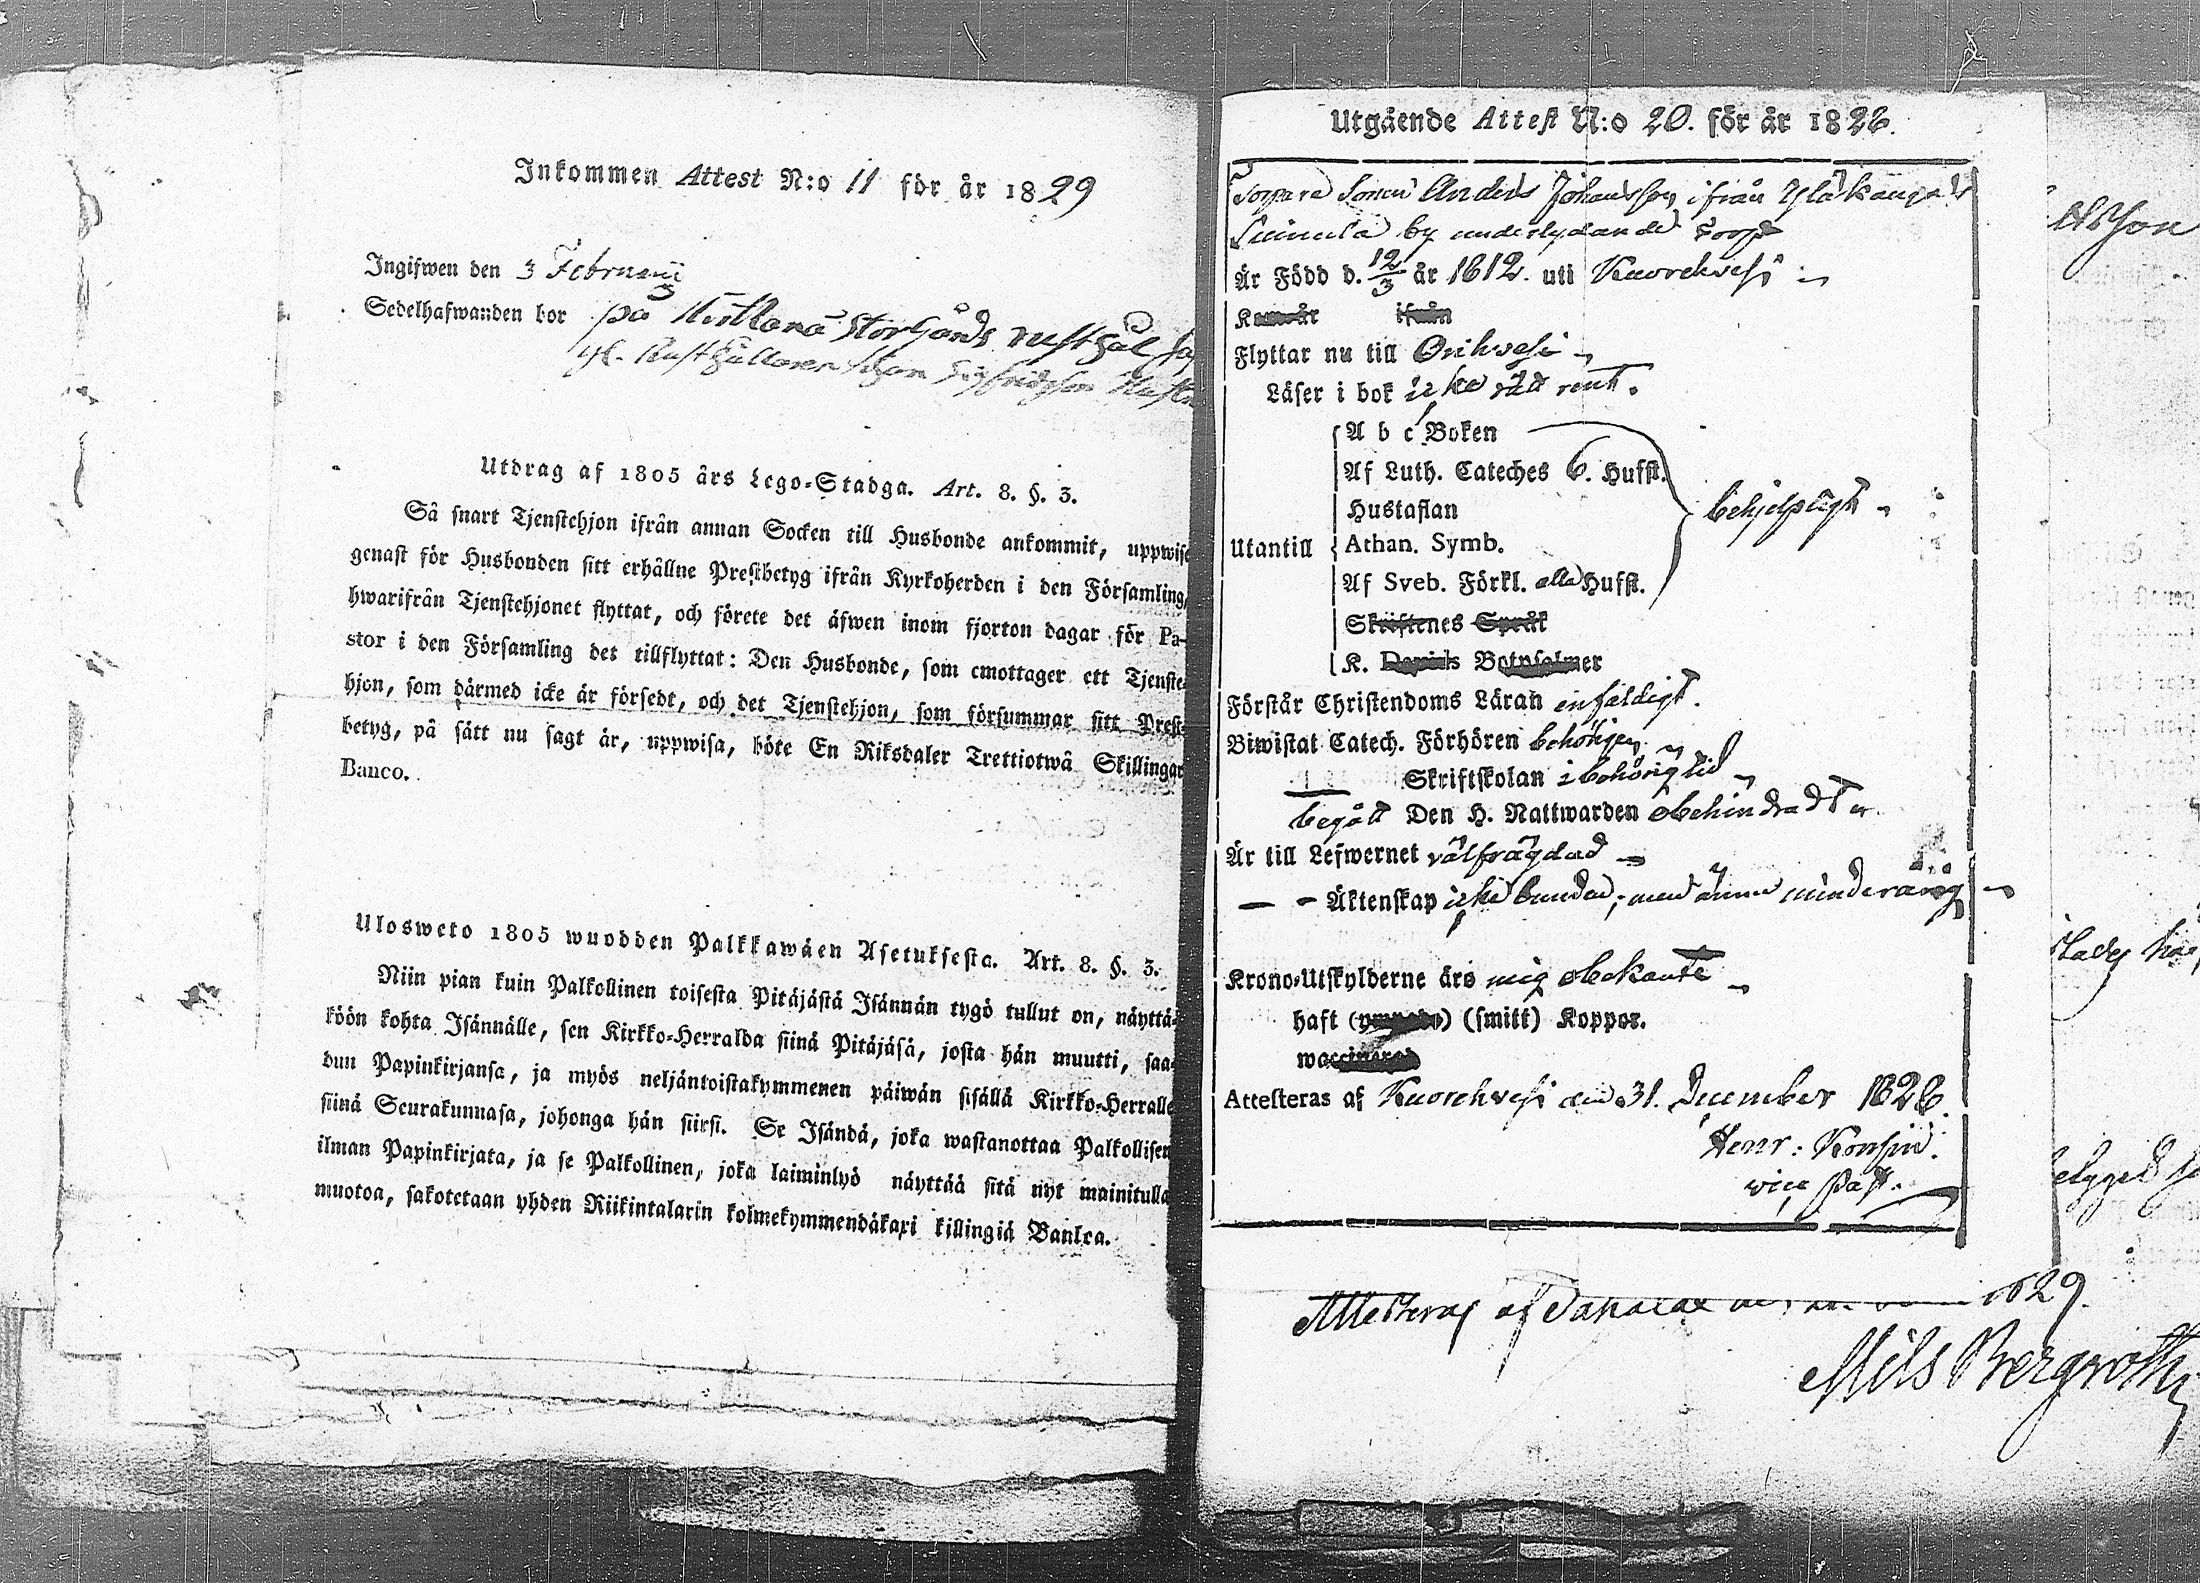 Inkommen Attest N:o 11 för år 1829
Ingifwen den 3 Februarii
Sedelhafwanden bor på storgårds rusthåll
Utdrag af 1805 års Lego-Stadga. Art. 8. §. 3.
Så snart Tjenstehjon ifrån annan Socken till Husbonde ankommit, uppwise
genast för Husbonden sitt erhållne Prestbetyg ifrån Kyrkoherden i den Församling,
hwarifrån Tjenstehjonet flyttat, och förete det äfwen inom fjorton dagar för Pa-
stor i den Församling det tillflyttat: Den Husbonde, som emottager ett Tjenste-
hjon, som därmed icke är försedt, och det Tjenstehjon, som försummar sitt Prest-
betyg, på sätt nu sagt är, uppwisa, böte En Riksdaler Trettiotwå Skillingar
Banco.
Ulosweto 1805 wuodden Palkkawäen Asetuksesta. Art. 8. §. 3.
Niin pian kuin Palkollinen toisesta Pitäjästä Isännän tygö tullut on, näyttä-
köön kohta Isännälle, sen Kirkko-Herralda siinä Pitäjäsä, josta hän muutti, saa-
dun Papinkirjansa, ja myös neljäntoistakymmenen päiwän sisällä Kirkko-Herralle
siinä Seurakunnasa, johonga hän siirsi. Se Isändä, joka wastanottaa Palkollisen
ilman Papinkirjata, ja se Palkollinen, joka laiminlyö näyttää sitä nyt mainitulla
muotoa, sakotetaan yhden Riikintalarin kolmekymmendäkaxi killingiä Banlea.
Utgående Attest N:o 20. för år 1828.
Torpare Sonen Anders Johansson ifrån
by underlydande Torp
Är Född d. 12/3 år 1812. uti Kuorehvesi
Kom år ifrån
Flyttar nu till Orihvesi
Läser i bok icke rätt rent.
A b c Boken
Af Luth. Cateches 6. Hufst.
Hustaflan
Utantill Athan. Symb. behjelpligt
Af Sveb. Förkl. alla Hufst.
Skriftenes Språk
K. Davids Botpsalmer
Förstår Christendoms Läran enfaldigt.
Biwistat Catech. Förhören behörigen
Skriftskolan i behörig tid
begått Den H. Nattwarden obehindradt
Är till Lefwernet välfrägdad
Äktenskap icke bunden, men ännu minderårig
Krono-Utskylderne äro mig obekante
haft (ympade) (smitt) Koppor.
waccinerad
Attesteras af Kuorehvesi den 31. December 1828.
Henr:
vice Past.
Attesteras af 1829.
Nils Bergroth